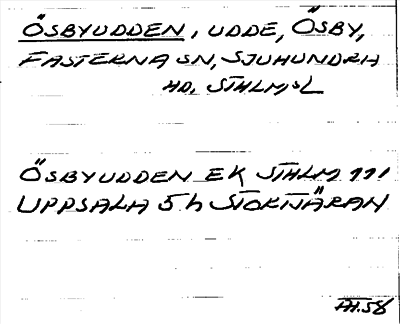 ÖSBYUDDEN, UDDE, ÖSBY,
FASTERNA SN, SJUHUNDRA
HD, STHLMSL
ÖSBYUDDEN EK STHLM 111
UPPSALA 5 h STORNÄRAN
AH.58